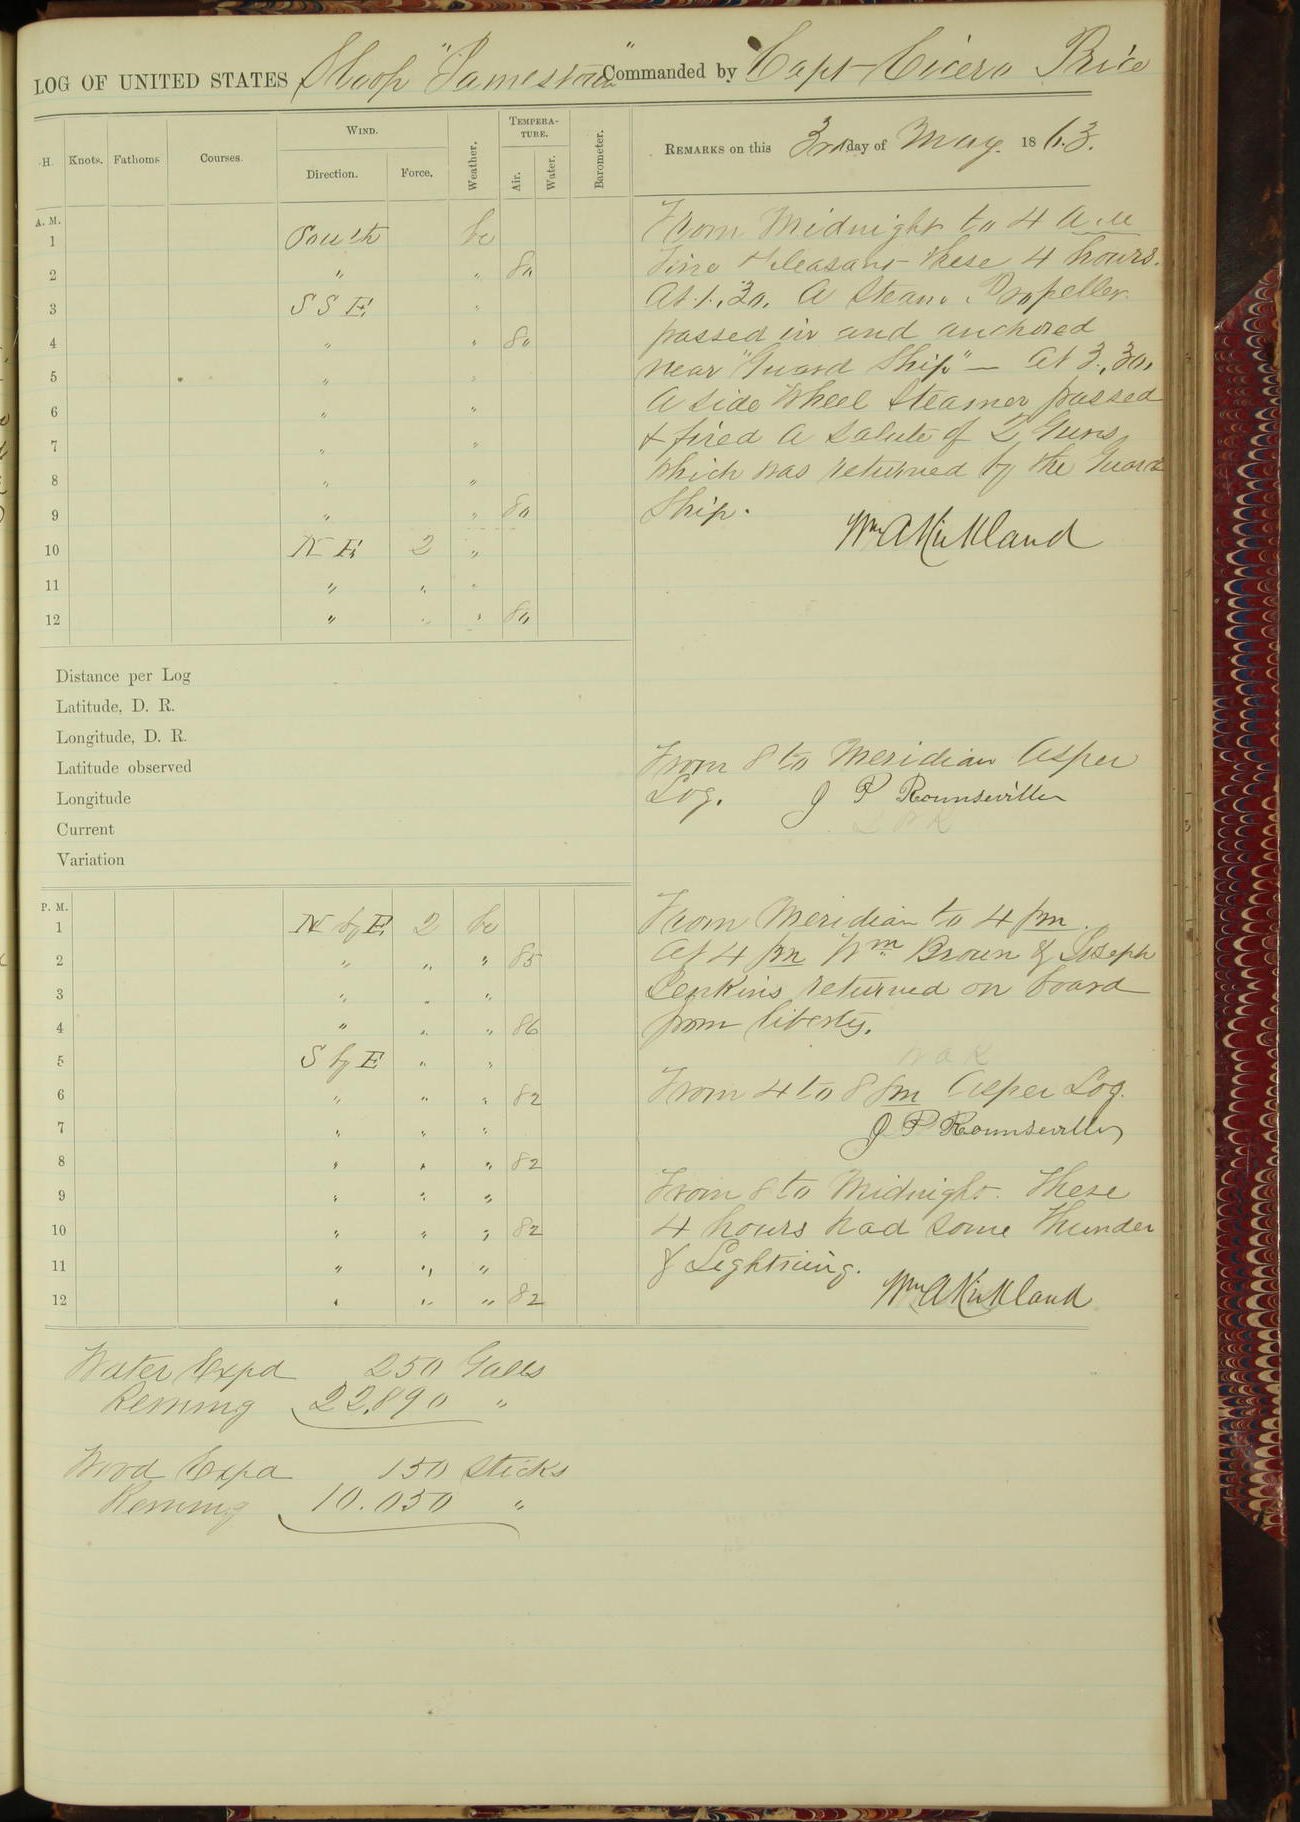 LOG OF UNITED STATES Sloop "Jamestown" Commanded by Capt Cicero Price
H. Knots. Fathoms. Courses. WIND. Direction. Force. Weather. TEMPERATURE. Air. Water. Barometer. REMARKS on this 3rd day of May. 1863.
A. M.
1 South bc
2 " " 80
3 S S E "
4 " " 80
5 " "
6 " "
7 " "
8 " "
9 " " 80
10 N E 2 "
11 " " "
12 " " " 80
From Midnight to 4 a m
Fine & Pleasant these 4 hours.
At 1.30. A Steam Propeller
passed in and anchored
near "Guard Ship" — At 3.30.
A side Wheel Steamer passed
& fired a Salute of 2 Guns
which was returned by the Guard
Ship.
Wm A Kirkland
Distance per Log
Latitude, D. R.
Longitude, D. R.
Latitude observed
Longitude
Current
Variation
From 8 to Meridian As per
Log. J P Rounseville
P. M.
1 N by E 2 bc
2 " " " 85
3 " " "
4 " " " 86
5 S by E " "
6 " " " 82
7 " " "
8 " " " 82
9 " " "
10 " " " 82
11 " " "
12 " " " 82
From Meridian to 4 pm.
At 4 pm Wm Brown & Joseph
Jenkins returned on board
from liberty.
W A K
From 4 to 8 pm As per Log.
J P Rounseville
From 8 to Midnight. These
4 hours had some Thunder
& Lightning.
Wm A Kirkland
Water Expd 250 Galls
Remng 22,890 "
Wood Expd 150 Sticks
Remng 10.050 "